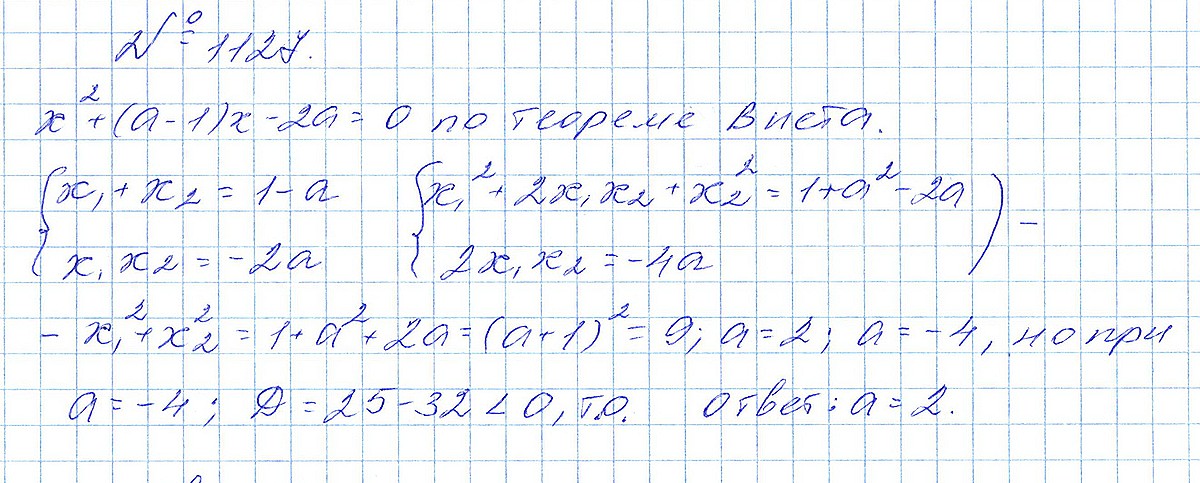 № 1127.
x² + (a - 1)x - 2a = 0 по теореме Виета.
{ x₁ + x₂ = 1 - a { x₁² + 2x₁x₂ + x₂² = 1 + a² - 2a ) -
x₁x₂ = -2a 2x₁x₂ = -4a
- x₁² + x₂² = 1 + a² + 2a = (a + 1)² = 9; a = 2; a = -4, но при
a = -4; D = 25 - 32 < 0, т.о. Ответ: a = 2.